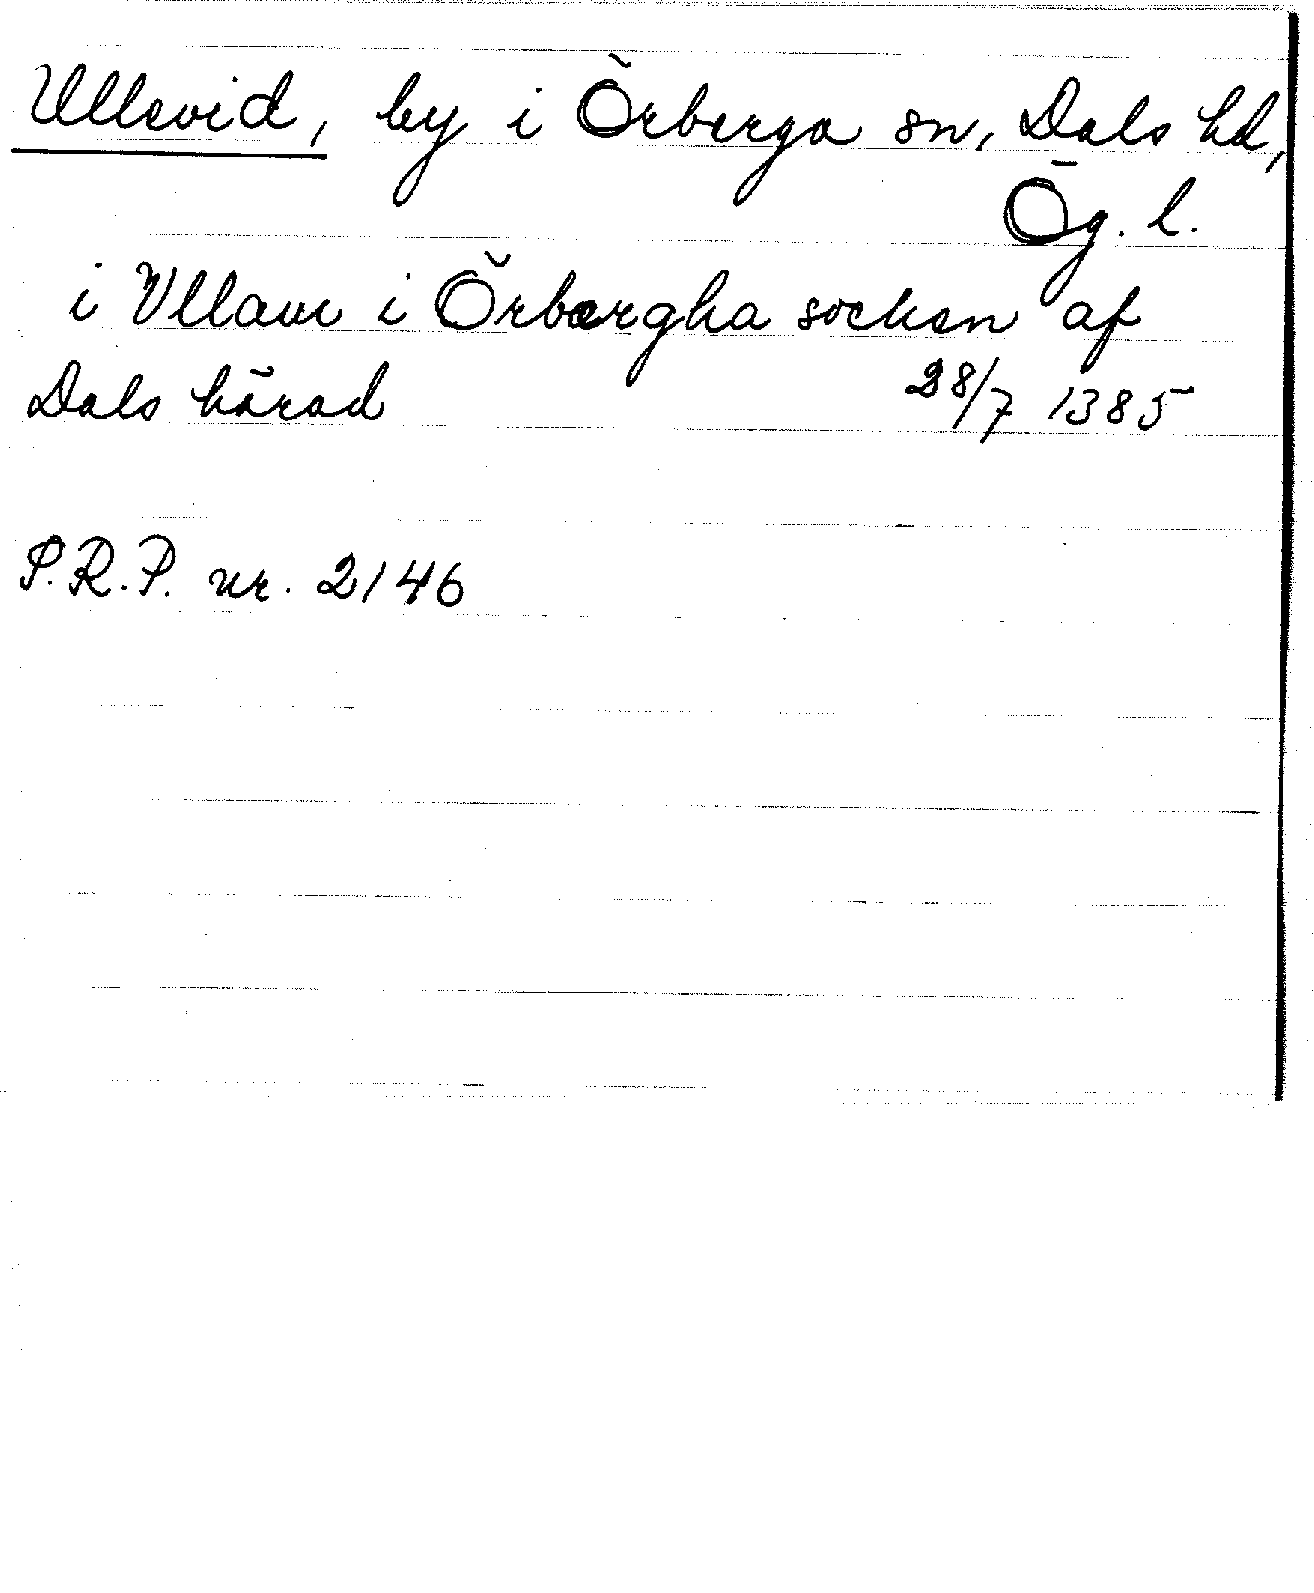 Ullevid, by i Örberga sn, Dals hd,
Ög. l.
i Vllawi i Örbærgha socken af
Dals härad 28/7 1385
S.R.P. nr. 2146